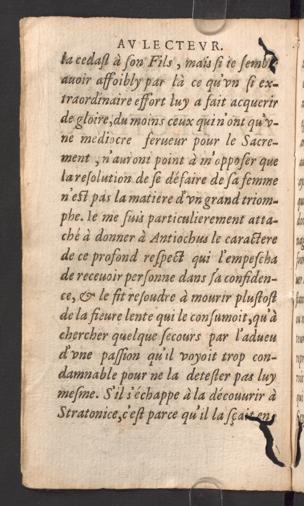 AV LECTEVR.
la cedast à son Fils, mais si ie semble
auoir affoibly par là ce qu'vn si ex-
traordinaire effort luy a fait acquerir
de gloire, du moins ceux qui n'ont qu'v-
ne mediocre ferueur pour le Sacre-
ment, n'auront point à m'opposer que
la resolution de se défaire de sa femme
n'est pas la matiere d'vn grand triom-
phe. Ie me suis particulierement atta-
ché à donner à Antiochus le caractere
de ce profond respect qui l'empescha
de receuoir personne dans sa confiden-
ce, & le fit resoudre à mourir plustost
de la fieure lente qui le consumoit, qu'à
chercher quelque secours par l'adueu
d'vne passion qu'il voyoit trop con-
damnable pour ne la detester pas luy
mesme. S'il s'échappe à la découurir à
Stratonice, c'est parce qu'il la sçait en-